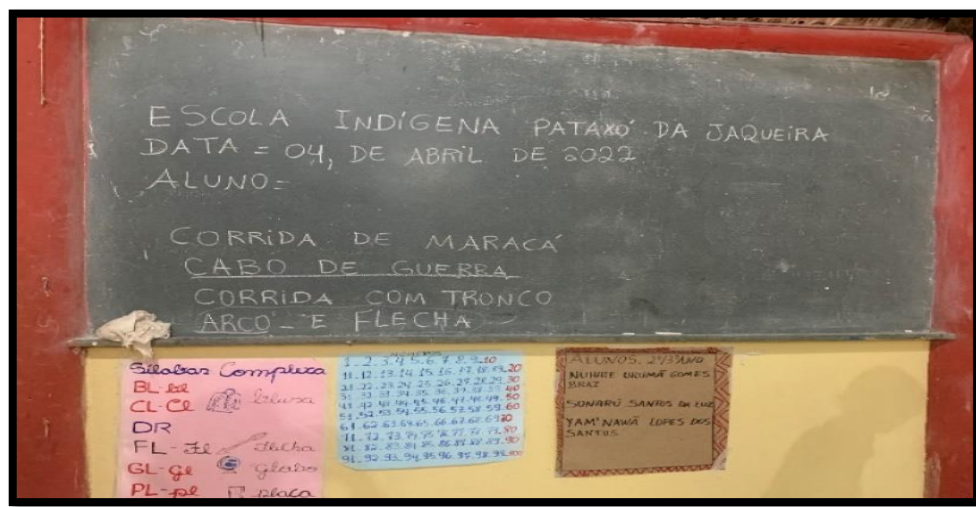 ESCOLA INDÍGENA PATAXÓ DA JAQUEIRA
DATA = 04, DE ABRIL DE 2022
ALUNO=
CORRIDA DE MARACÁ
CABO DE GUERRA
CORRIDA COM TRONCO
ARCO - E FLECHA
Sílabas Complexa
BL-bl
blusa
CL-Cl
DR
FL-Fl
flecha
GL-gl
globo
PL-pl
placa
1.2.3.4.5.6.7.8.9.10
11.12.13.14.15.16.17.18.19.20
21.22.23.24.25.26.27.28.29.30
31.32.33.34.35.36.37.38.39.40
41.42.43.44.45.46.47.48.49.50
51.52.53.54.55.56.57.58.59.60
61.62.63.64.65.66.67.68.69.70
71.72.73.74.75.76.77.78.79.80
81.82.83.84.85.86.87.88.89.90
91.92.93.94.95.96.97.98.99.100
ALUNOS. 2º/3º ANO
GOMES
BRAZ
SANTOS DA LUZ
YAM'NAWÃ LOPES DOS
SANTOS